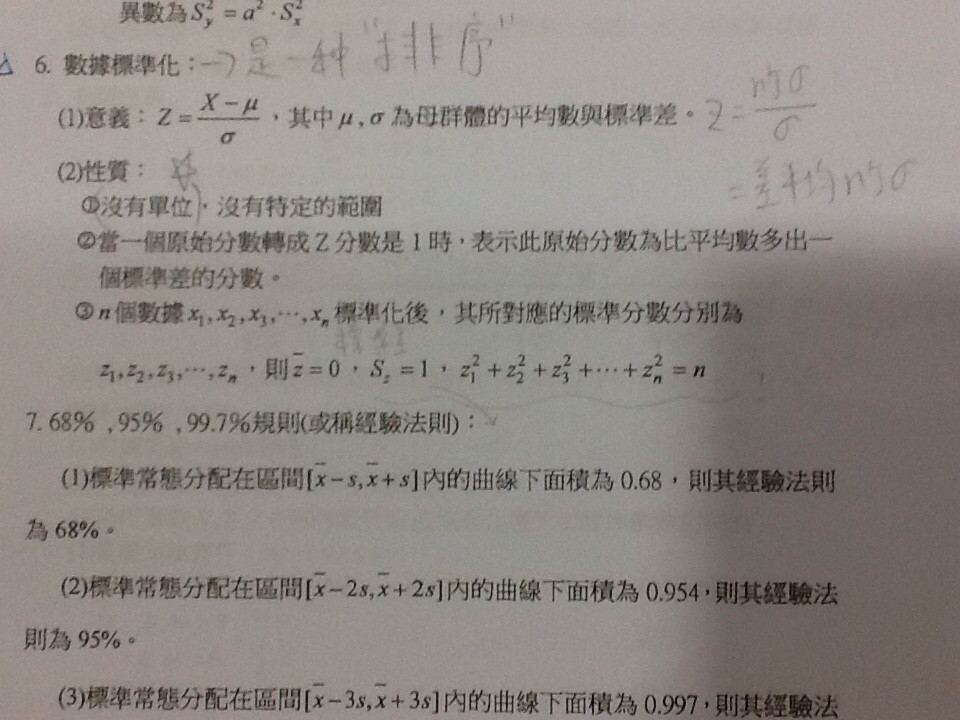 異數為 S_y^2 = a^2 · S_x^2
6. 數據標準化：→是一种"排序"
(1)意義：Z = (X − μ)/σ，其中 μ, σ 為母群體的平均數與標準差。 Z =
σ
(2)性質：☆
= 差平均的σ
①沒有單位，沒有特定的範圍
②當一個原始分數轉成 Z 分數是 1 時，表示此原始分數為比平均數多出一
個標準差的分數。
③ n 個數據 x_1, x_2, x_3, ⋯, x_n 標準化後，其所對應的標準分數分別為
標準差
z_1, z_2, z_3, ⋯, z_n，則 z̄ = 0，S_z = 1，z_1^2 + z_2^2 + z_3^2 + ⋯ + z_n^2 = n
7. 68%，95%，99.7%規則(或稱經驗法則)：
(1)標準常態分配在區間[x̄ − s, x̄ + s]內的曲線下面積為 0.68，則其經驗法則
為 68%。
(2)標準常態分配在區間[x̄ − 2s, x̄ + 2s]內的曲線下面積為 0.954，則其經驗法
則為 95%。
(3)標準常態分配在區間[x̄ − 3s, x̄ + 3s]內的曲線下面積為 0.997，則其經驗法